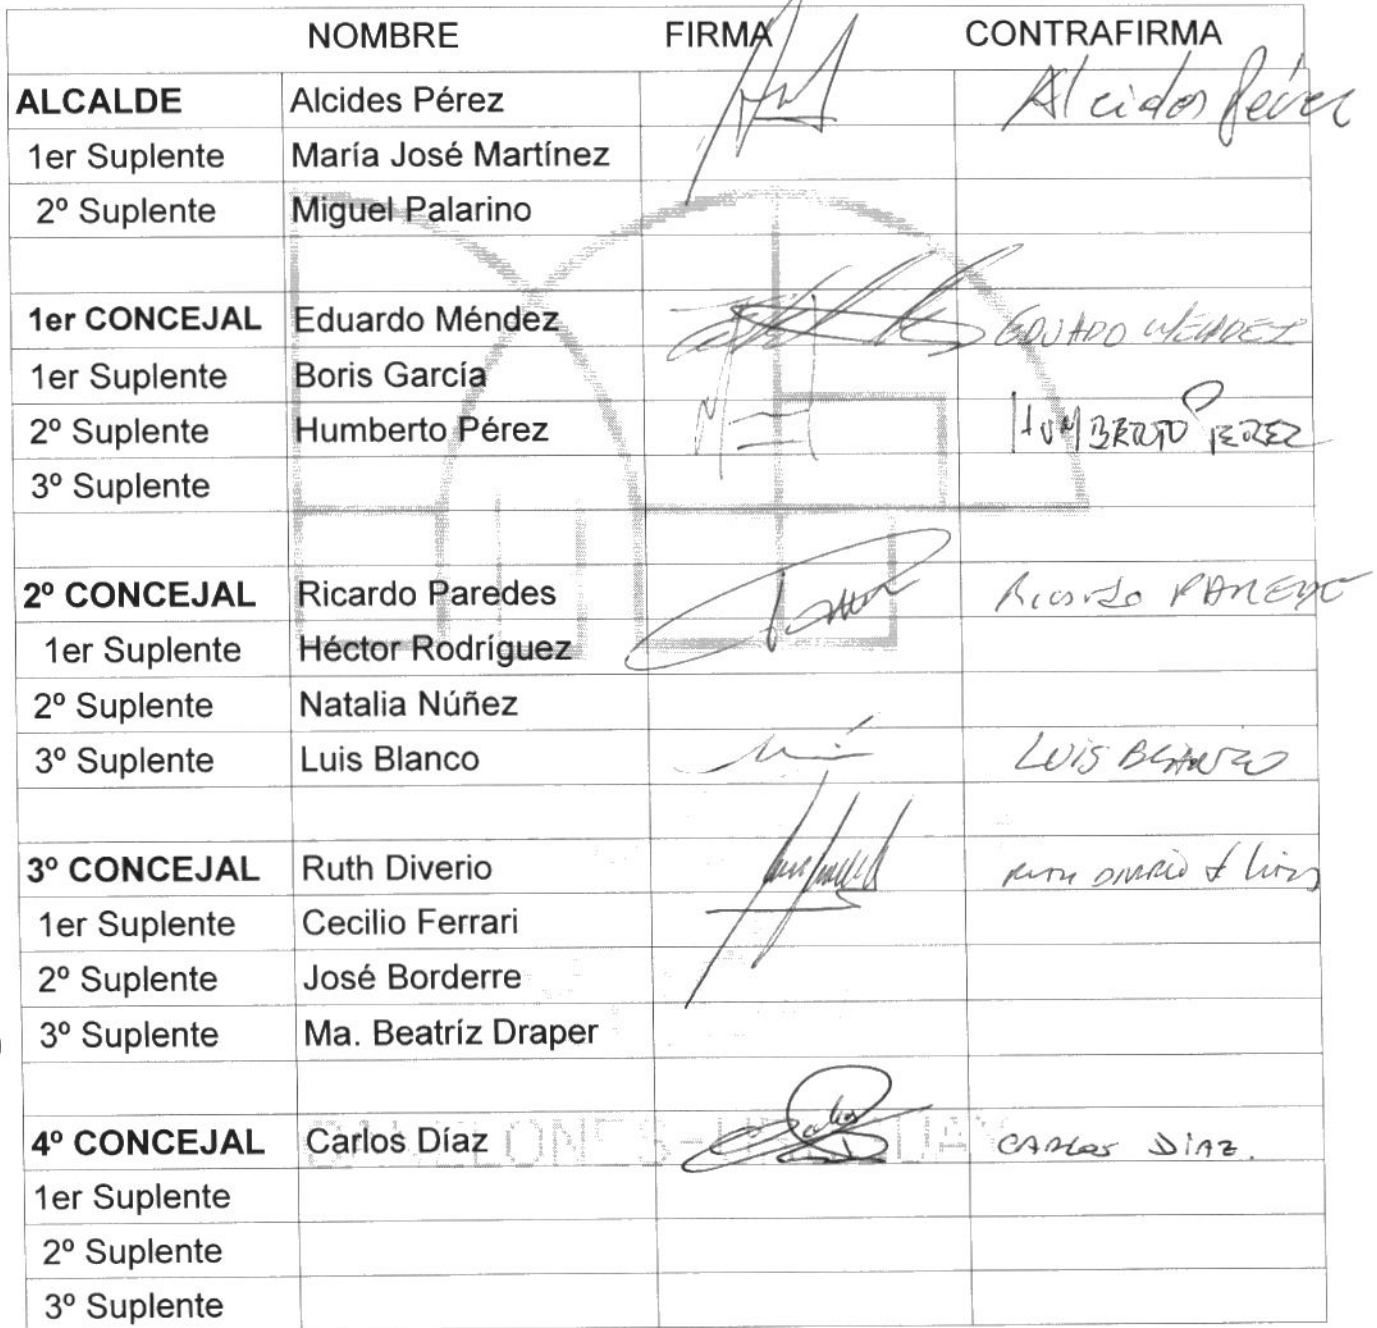 NOMBRE FIRMA CONTRAFIRMA
ALCALDE Alcides Pérez Alcides Pérez
1er Suplente María José Martínez
2º Suplente Miguel Palarino
1er CONCEJAL Eduardo Méndez EDUARDO MÉNDEZ
1er Suplente Boris García
2º Suplente Humberto Pérez HUMBERTO PEREZ
3º Suplente
2º CONCEJAL Ricardo Paredes Ricardo PAREDES
1er Suplente Héctor Rodríguez
2º Suplente Natalia Núñez
3º Suplente Luis Blanco LUIS BLANCO
3º CONCEJAL Ruth Diverio RUTH DIVERIO
1er Suplente Cecilio Ferrari
2º Suplente José Borderre
3º Suplente Ma. Beatríz Draper
4º CONCEJAL Carlos Díaz CARLOS DÍAZ.
1er Suplente
2º Suplente
3º Suplente